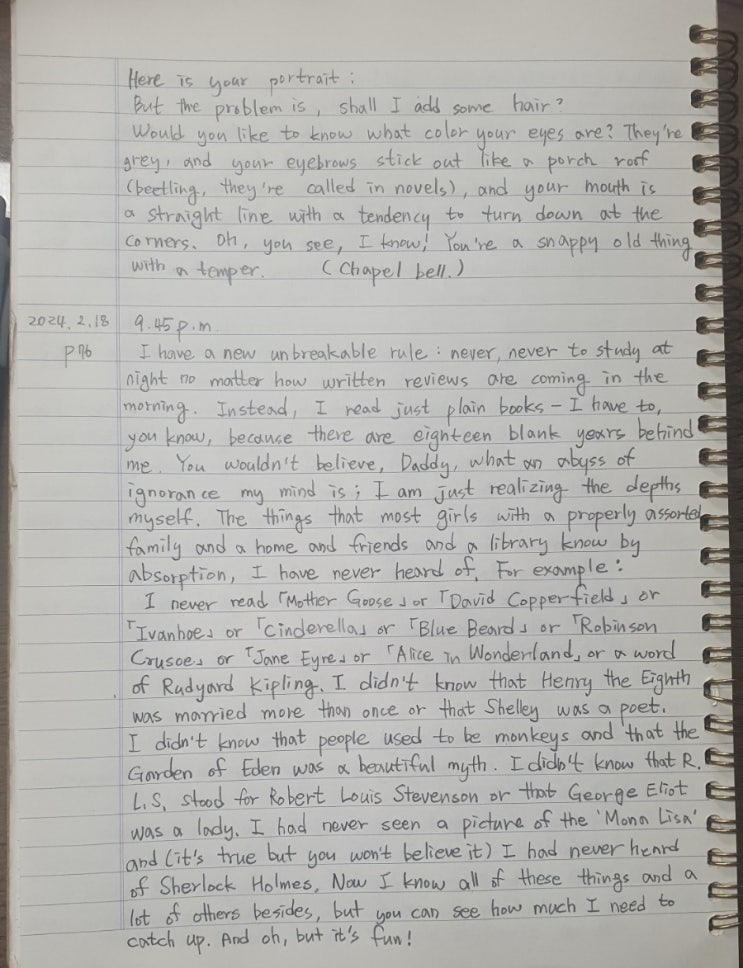 Here is your portrait :
But the problem is, shall I add some hair?
Would you like to know what color your eyes are? They're
grey, and your eyebrows stick out like a porch roof
(beetling, they're called in novels), and your mouth is
a straight line with a tendency to turn down at the
corners. Oh, you see, I know! You're a snappy old thing
with a temper. (Chapel bell.)
2024. 2. 18 9.45 p.m.
P76 I have a new unbreakable rule : never, never to study at
night no matter how written reviews are coming in the
morning. Instead, I read just plain books - I have to,
you know, because there are eighteen blank years behind
me. You wouldn't believe, Daddy, what an abyss of
ignorance my mind is ; I am just realizing the depths
myself. The things that most girls with a properly assorted
family and a home and friends and a library know by
absorption, I have never heard of. For example :
I never read 「Mother Goose」 or 「David Copperfield」 or
「Ivanhoe」 or 「Cinderella」 or 「Blue Beard」 or 「Robinson
Crusoe」 or 「Jane Eyre」 or 「Alice in Wonderland」 or a word
of Rudyard Kipling. I didn't know that Henry the Eighth
was married more than once or that Shelley was a poet.
I didn't know that people used to be monkeys and that the
Garden of Eden was a beautiful myth. I didn't know that R.
L.S. stood for Robert Louis Stevenson or that George Eliot
was a lady. I had never seen a picture of the 'Mona Lisa'
and (it's true but you won't believe it) I had never heard
of Sherlock Holmes. Now I know all of these things and a
lot of others besides, but you can see how much I need to
catch up. And oh, but it's fun!